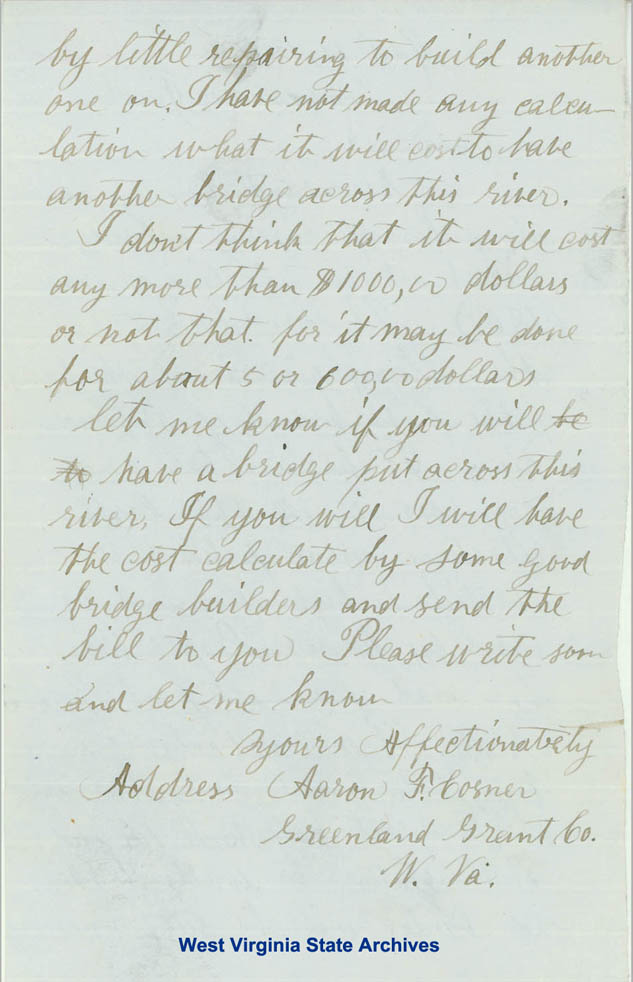 by little repairing to build another
one on. I have not made any calcu-
lation what it will cost to have
another bridge across this river.
I don't think that it will cost
any more than $1000,00 dollars
or not that. for it may be done
for about 5 or 600,00 dollars
let me know if you will be
to have a bridge put across this
river, If you will I will have
the cost calculate by some good
bridge builders and send the
bill to you Please write soon
and let me know
Yours Affectionately
Address Aaron F. Cosner
Greenland Grant Co.
W. Va.
West Virginia State Archives